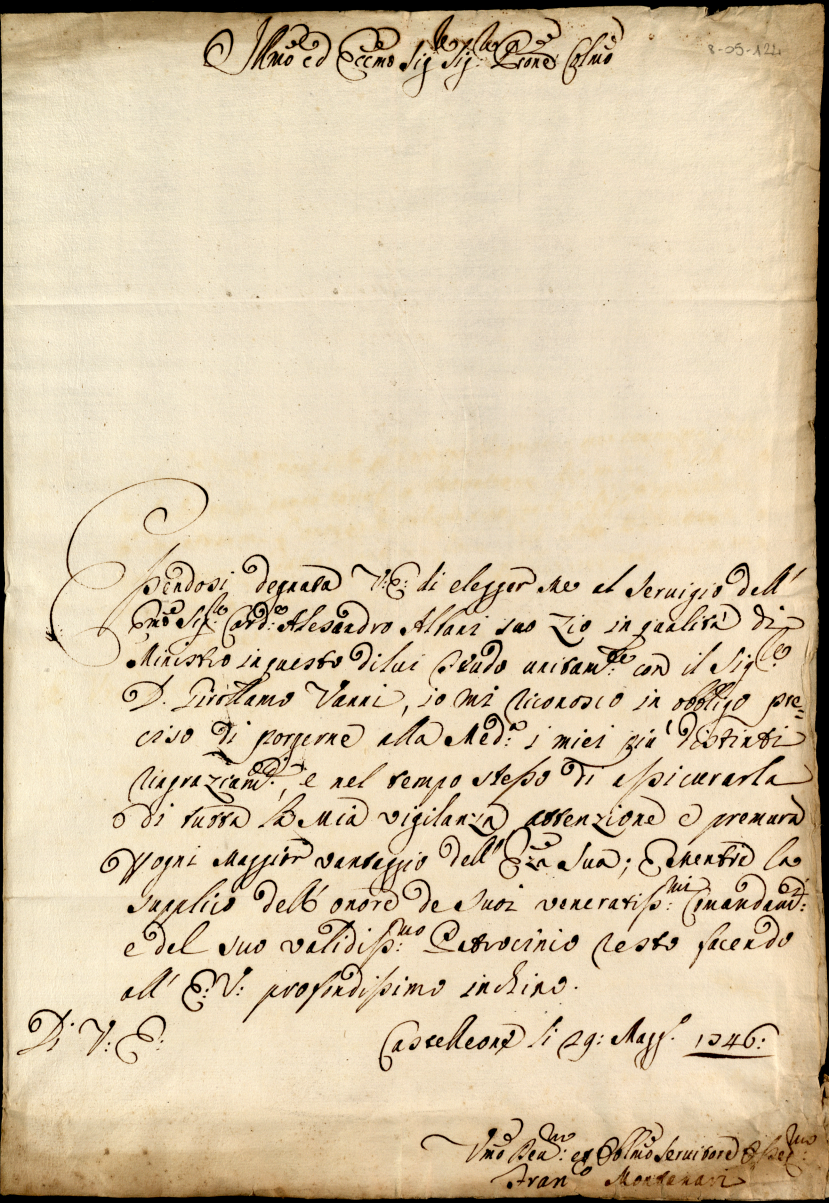 Illmo ed Eccmo Sig.re Sig.re Prone Colmo
8-05-122
Essendosi degnata V: E: di elegger me al Seruigio dell'
Emo Sig.le Card.e Alesandro Albani suo Zio in qualità di
Ministro in questo di lui Feudo unitam.te con il Sig.re
D. Girolamo Vanni, io mi riconosco in obbligo pre=
ciso di porgerne alla Med.a i miei più distinti
ringraziam.ti, e nel tempo stesso di assicurarla
di tutta la mia vigilanza, attenzione e premura
p ogni maggior vantaggio dell' Emza Sua; E mentre la
supplico dell' onore de Suoi veneratiss.mi Comandam.ti
e del suo validiss.mo Patrocinio resto facendo
all' E: V: profondissimo inchino.
Di V: E:
Castelleone li 29: Magg.o 1746:
Vmo Deu.mo ed Obblmo Seruitore Ossec.mo
Fran.co Montanari